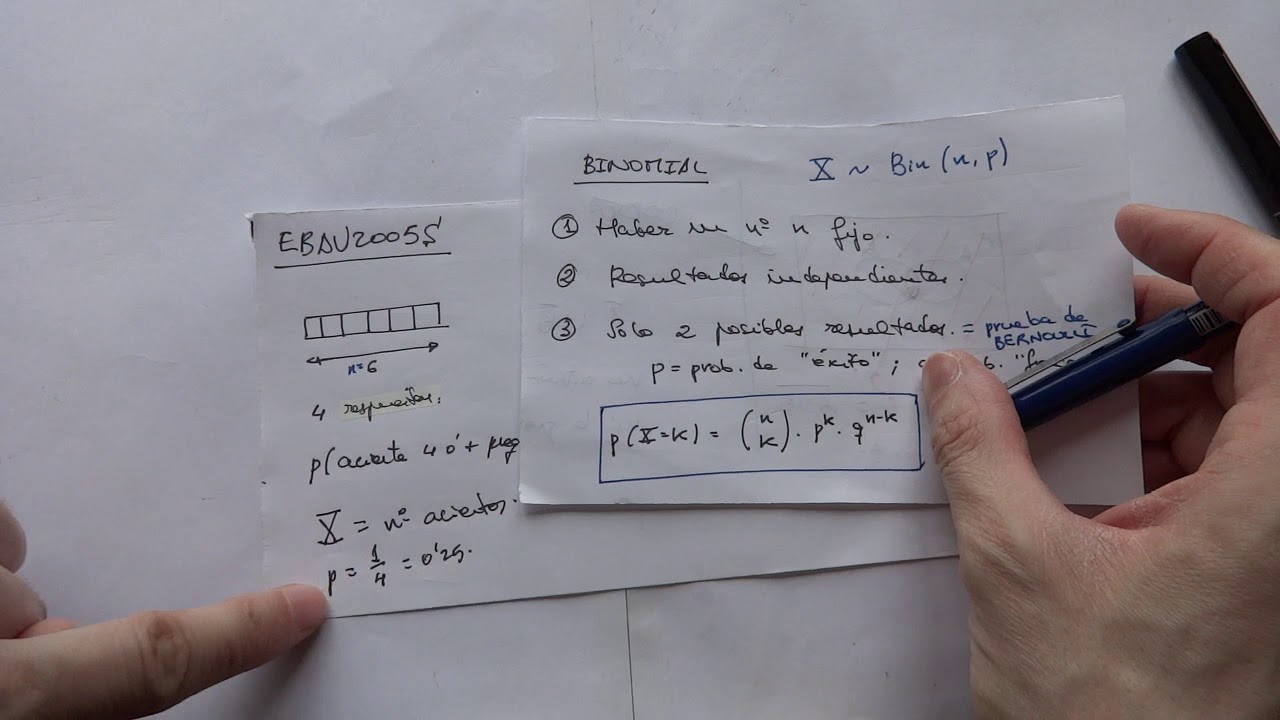 EBAU2005S
n=6
4 respuestas.
p(acierte 4 ó + preg
X = nº aciertos.
p = 1/4 = 0'25.
BINOMIAL
X ~ Bin (n, p)
① Haber un nº n fijo.
② Resultados independientes.
③ Solo 2 posibles resultados. = prueba de
BERNOULLI
p = prob. de "éxito" ;
p(X=k) = (n k) · p^k · q^n-k